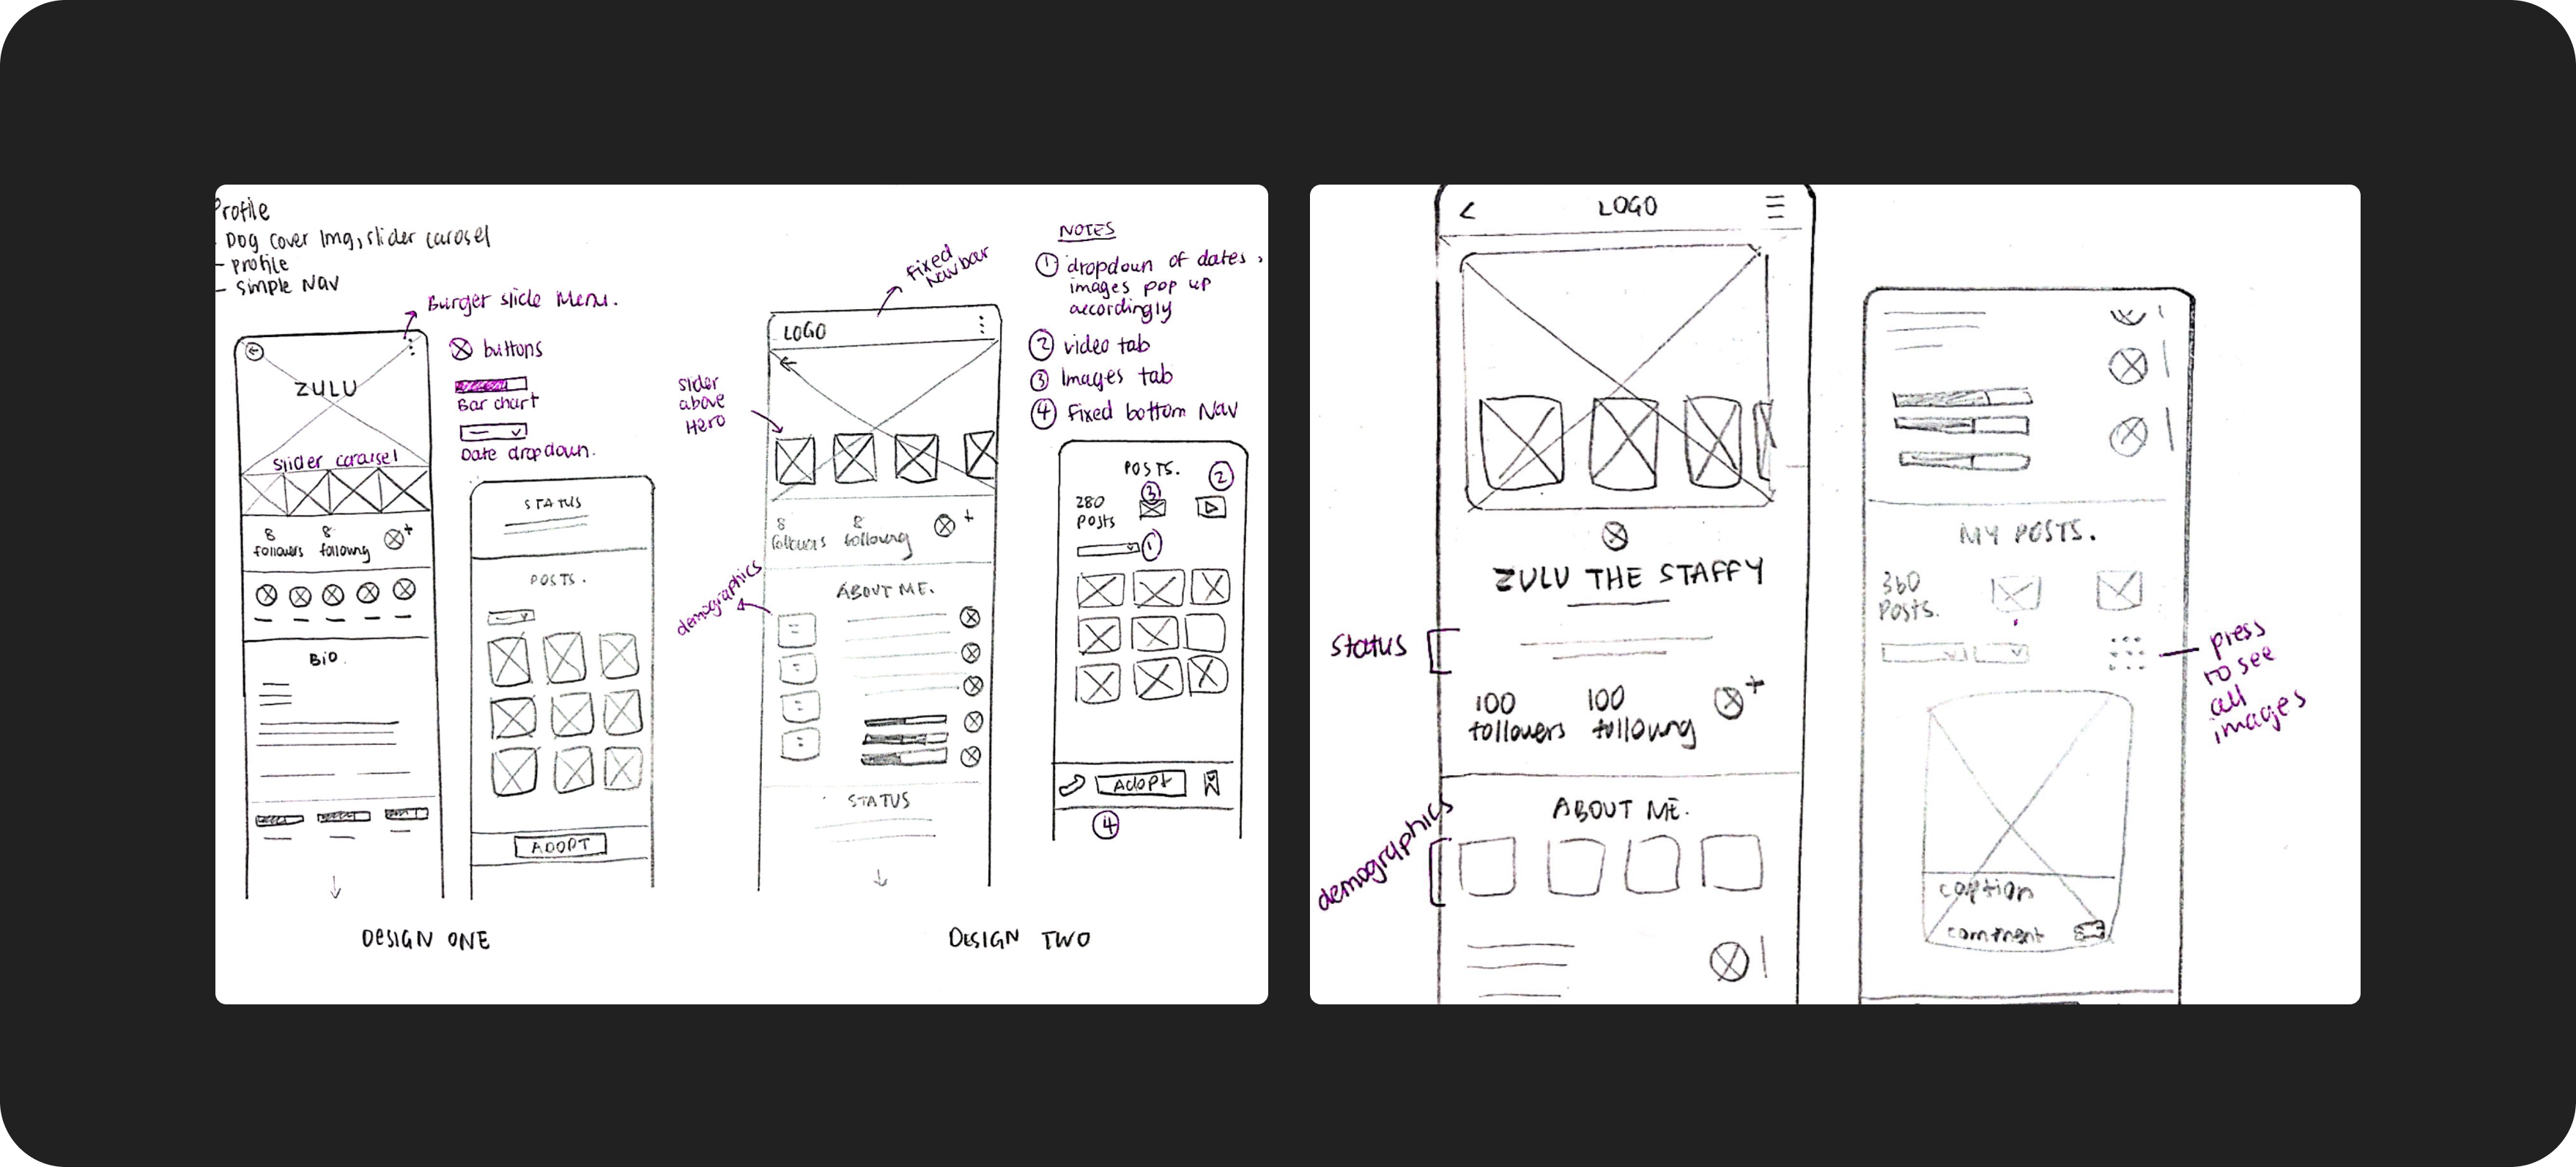 Profile
- Dog cover Img, slider carosel
- Profile
- Simple Nav
Burger slide Menu.
buttons
Bar chart
Date dropdown.
ZULU
slider carousel
8
followers
8
following
+
BiO.
STATUS
POSTS.
ADOPT
DESIGN ONE
fixed
Nav bar
LOGO
slider
above
Hero
8
followers
8
following
+
demographics
ABOUT ME.
STATUS
DESIGN TWO
NOTES
① dropdown of dates,
images pop up
accordingly
② video tab
③ Images tab
④ Fixed bottom Nav
POSTS.
②
③
280
Posts
①
Adopt
④
LOGO
ZULU THE STAFFY
Status
100
followers
100
following
+
demographics
ABOUT ME.
MY POSTS.
360
Posts.
press
to see
all
images
caption
comment